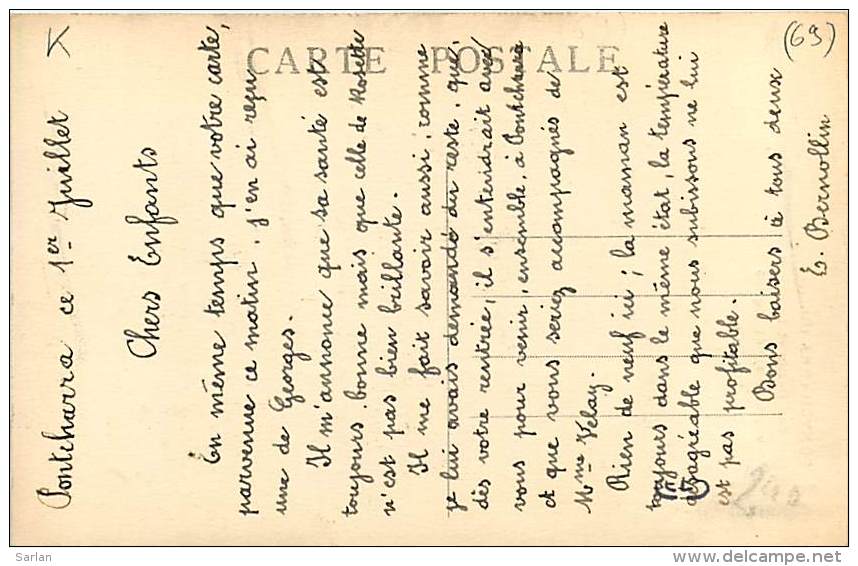 CARTE POSTALE
(69)
Pontcharra ce 1er Juillet
Chers Enfants
En même temps que votre carte,
parvenue ce matin, j'en ai reçu
une de Georges.
Il m'annonce que sa santé est
toujours bonne mais que celle de Rosette
n'est pas bien brillante.
Il me fait savoir aussi, comme
je lui avais demandé du reste, que,
dès votre rentrée, il s'entendrait avec
vous pour venir, ensemble, à Pontcharra
et que vous seriez accompagnés de
Mme Velay.
Rien de neuf ici; la maman est
toujours dans le même état, la température
désagréable que nous subissons ne lui
est pas profitable.
Bons baisers à tous deux
E. Bernollin
Sarlan
delcampe.net